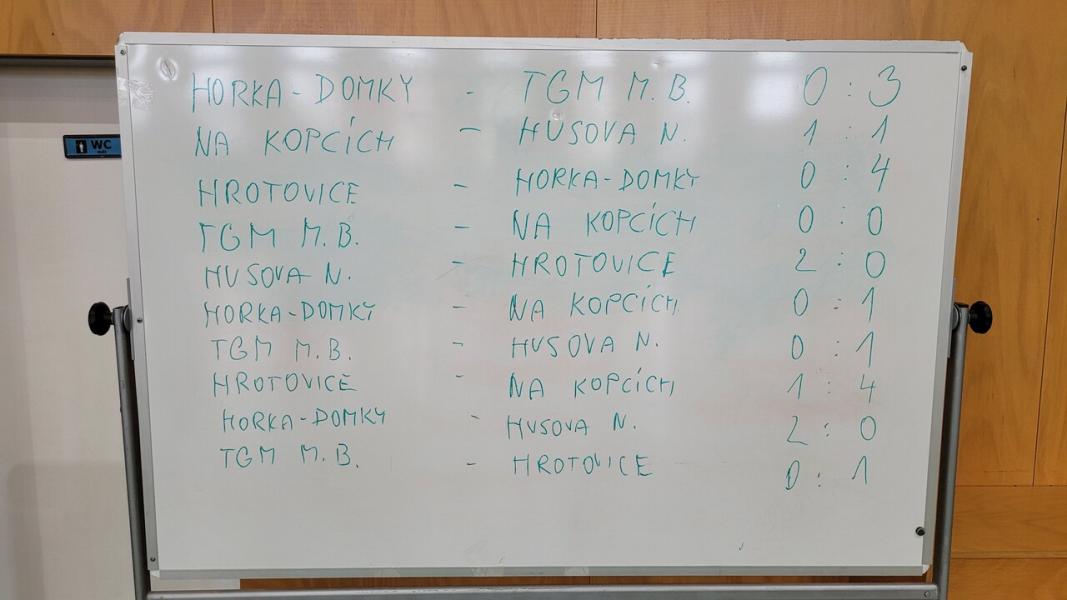 WC
HORKA-DOMKY - TGM M.B. 0 : 3
NA KOPCÍCH - HUSOVA N. 1 : 1
HROTOVICE - HORKA-DOMKY 0 : 4
TGM M.B. - NA KOPCÍCH 0 : 0
HUSOVA N. - HROTOVICE 2 : 0
HORKA-DOMKY - NA KOPCÍCH 0 : 1
TGM M.B. - HUSOVA N. 0 : 1
HROTOVICE - NA KOPCÍCH 1 : 4
HORKA-DOMKY - HUSOVA N. 2 : 0
TGM M.B. - HROTOVICE 0 : 1